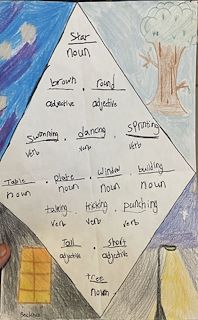 Star
noun
brown, round
adjective adjective
Swimming, dancing, sprinting
verb verb verb
Table, plate, window, building
noun noun noun noun
talking, kicking, punching
verb verb verb
Tall, short
adjective adjective
tree
noun